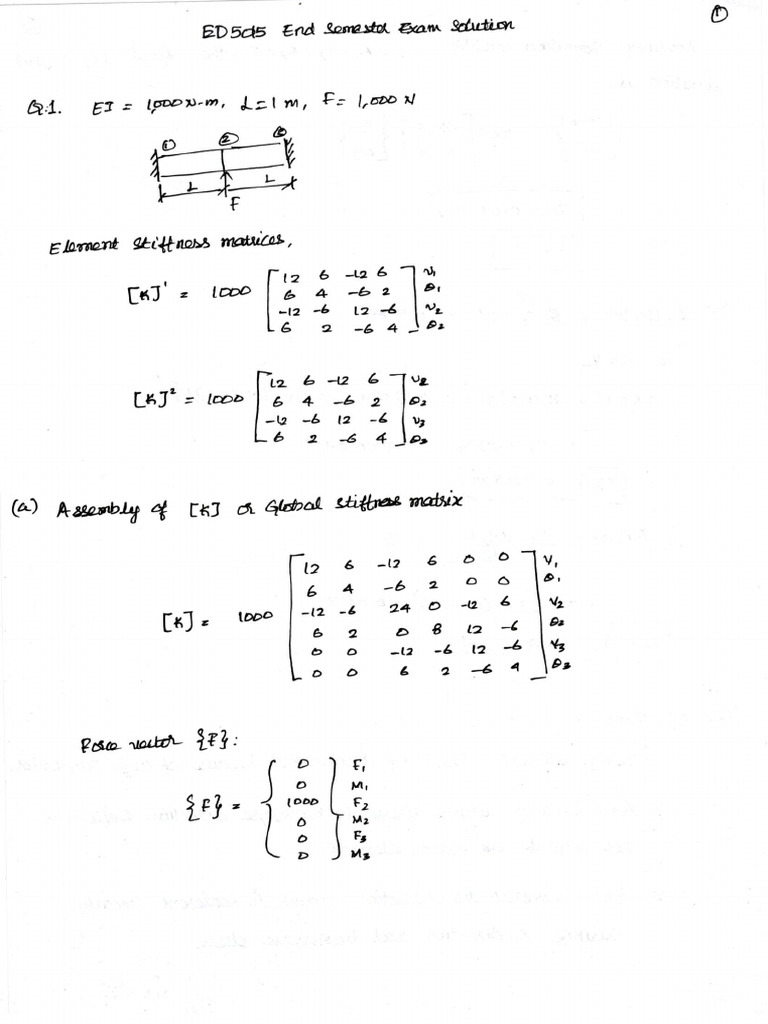 ①
ED5015 End Semester Exam Solution
Q.1. EI = 1,000 N-m, L=1 m, F= 1,000 N
① ② ③
L L
F
Element stiffness matrices,
[K]¹ = 1000
12 6 -12 6 v₁
6 4 -6 2 θ₁
-12 -6 12 -6 v₂
6 2 -6 4 θ₂
[K]² = 1000
12 6 -12 6 v₂
6 4 -6 2 θ₂
-12 -6 12 -6 v₃
6 2 -6 4 θ₃
(a) Assembly of [K] or Global stiffness matrix
[K] = 1000
12 6 -12 6 0 0 v₁
6 4 -6 2 0 0 θ₁
-12 -6 24 0 -12 6 v₂
6 2 0 8 12 -6 θ₂
0 0 -12 -6 12 -6 v₃
0 0 6 2 -6 4 θ₃
Force vector {F}:
{F} =
0 F₁
0 M₁
1000 F₂
0 M₂
0 F₃
0 M₃